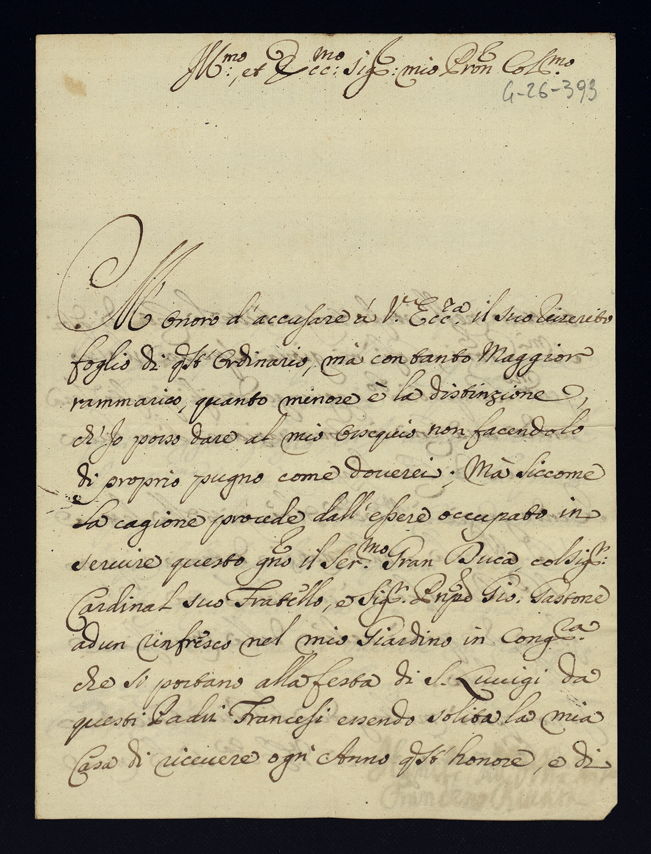 Ill:mo, et Ecc:mo Sig:r mio Pron Col:mo
G-26-393
M'onoro d'accusare à V.ra Ecc.za il suo riverito
foglio di q.sto Ordinario, mà con tanto Maggior
rammarico, quanto minore è la distinzione,
ch'Io posso dare al mio ossequio non facendolo
di proprio pugno come doverei. Mà siccome
la cagione procede dall'essere occupato in
servire questo gno il Ser.mo Gran Duca, col Sig.r
Cardinal suo Fratello, e Sig.r Pnpe Gio. Gastone
ad un rinfresco nel mio Giardino in Cong.ra
che si portano alla festa di S. Luigi da
questi Padri Francesi essendo solita la mia
Casa di ricevere ogni Anno q.sto honore, e di